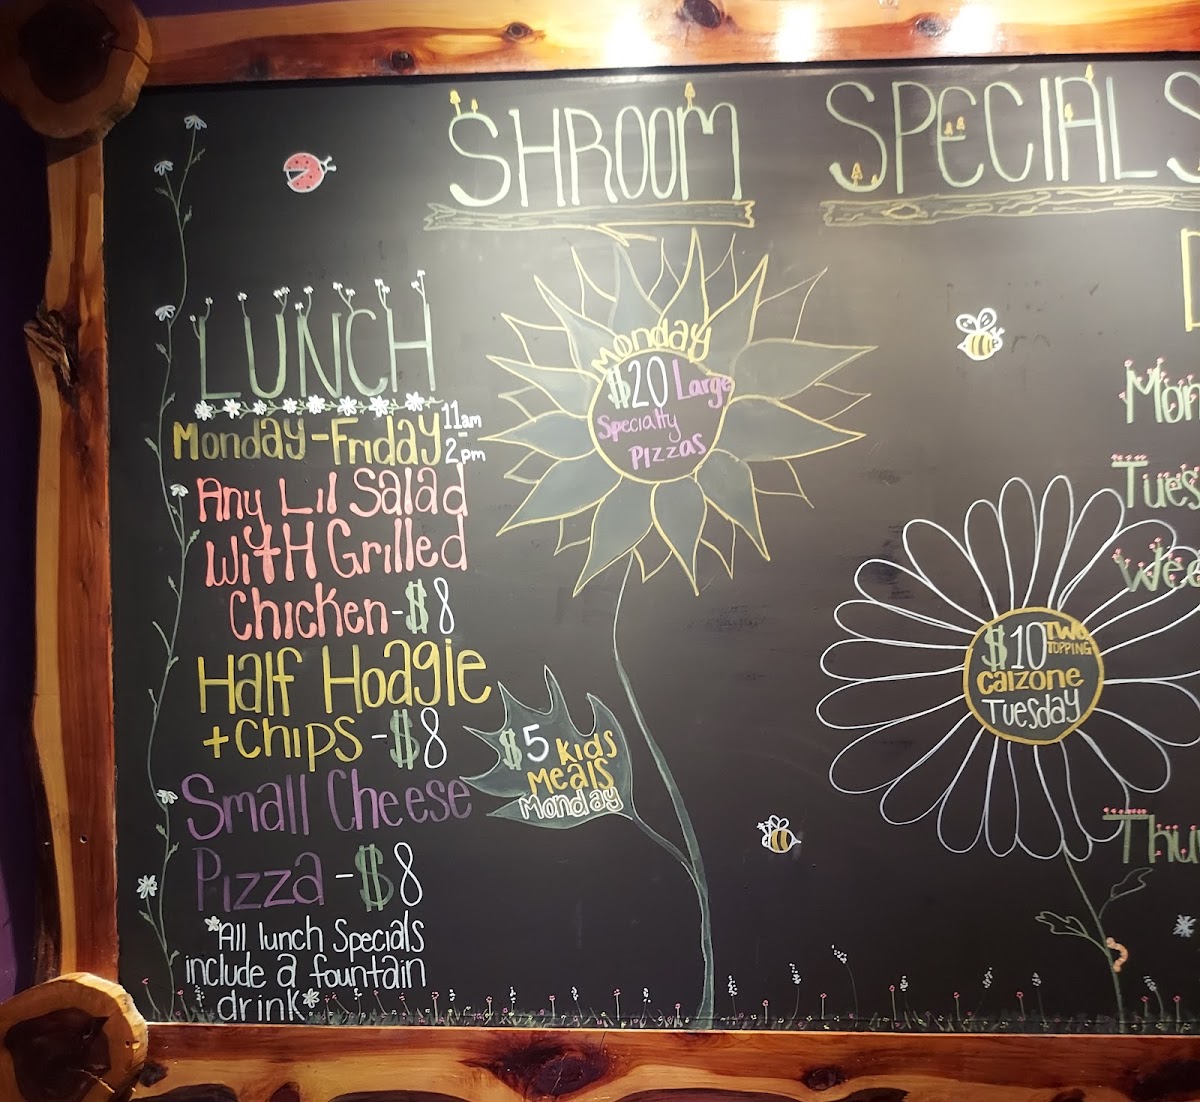 SHROOM SPECIALS
LUNCH
Monday-Friday 11am-2pm
Any Lil Salad
With Grilled
Chicken-$8
Half Hoagie
+Chips-$8
Small Cheese
Pizza-$8
*All lunch Specials
include a fountain
drink*
Monday
$20 Large
Specialty
Pizzas
$5 Kids
Meals
Monday
$10 TWO
TOPPING
Calzone
Tuesday
Mon
Tues
Wed
Thu